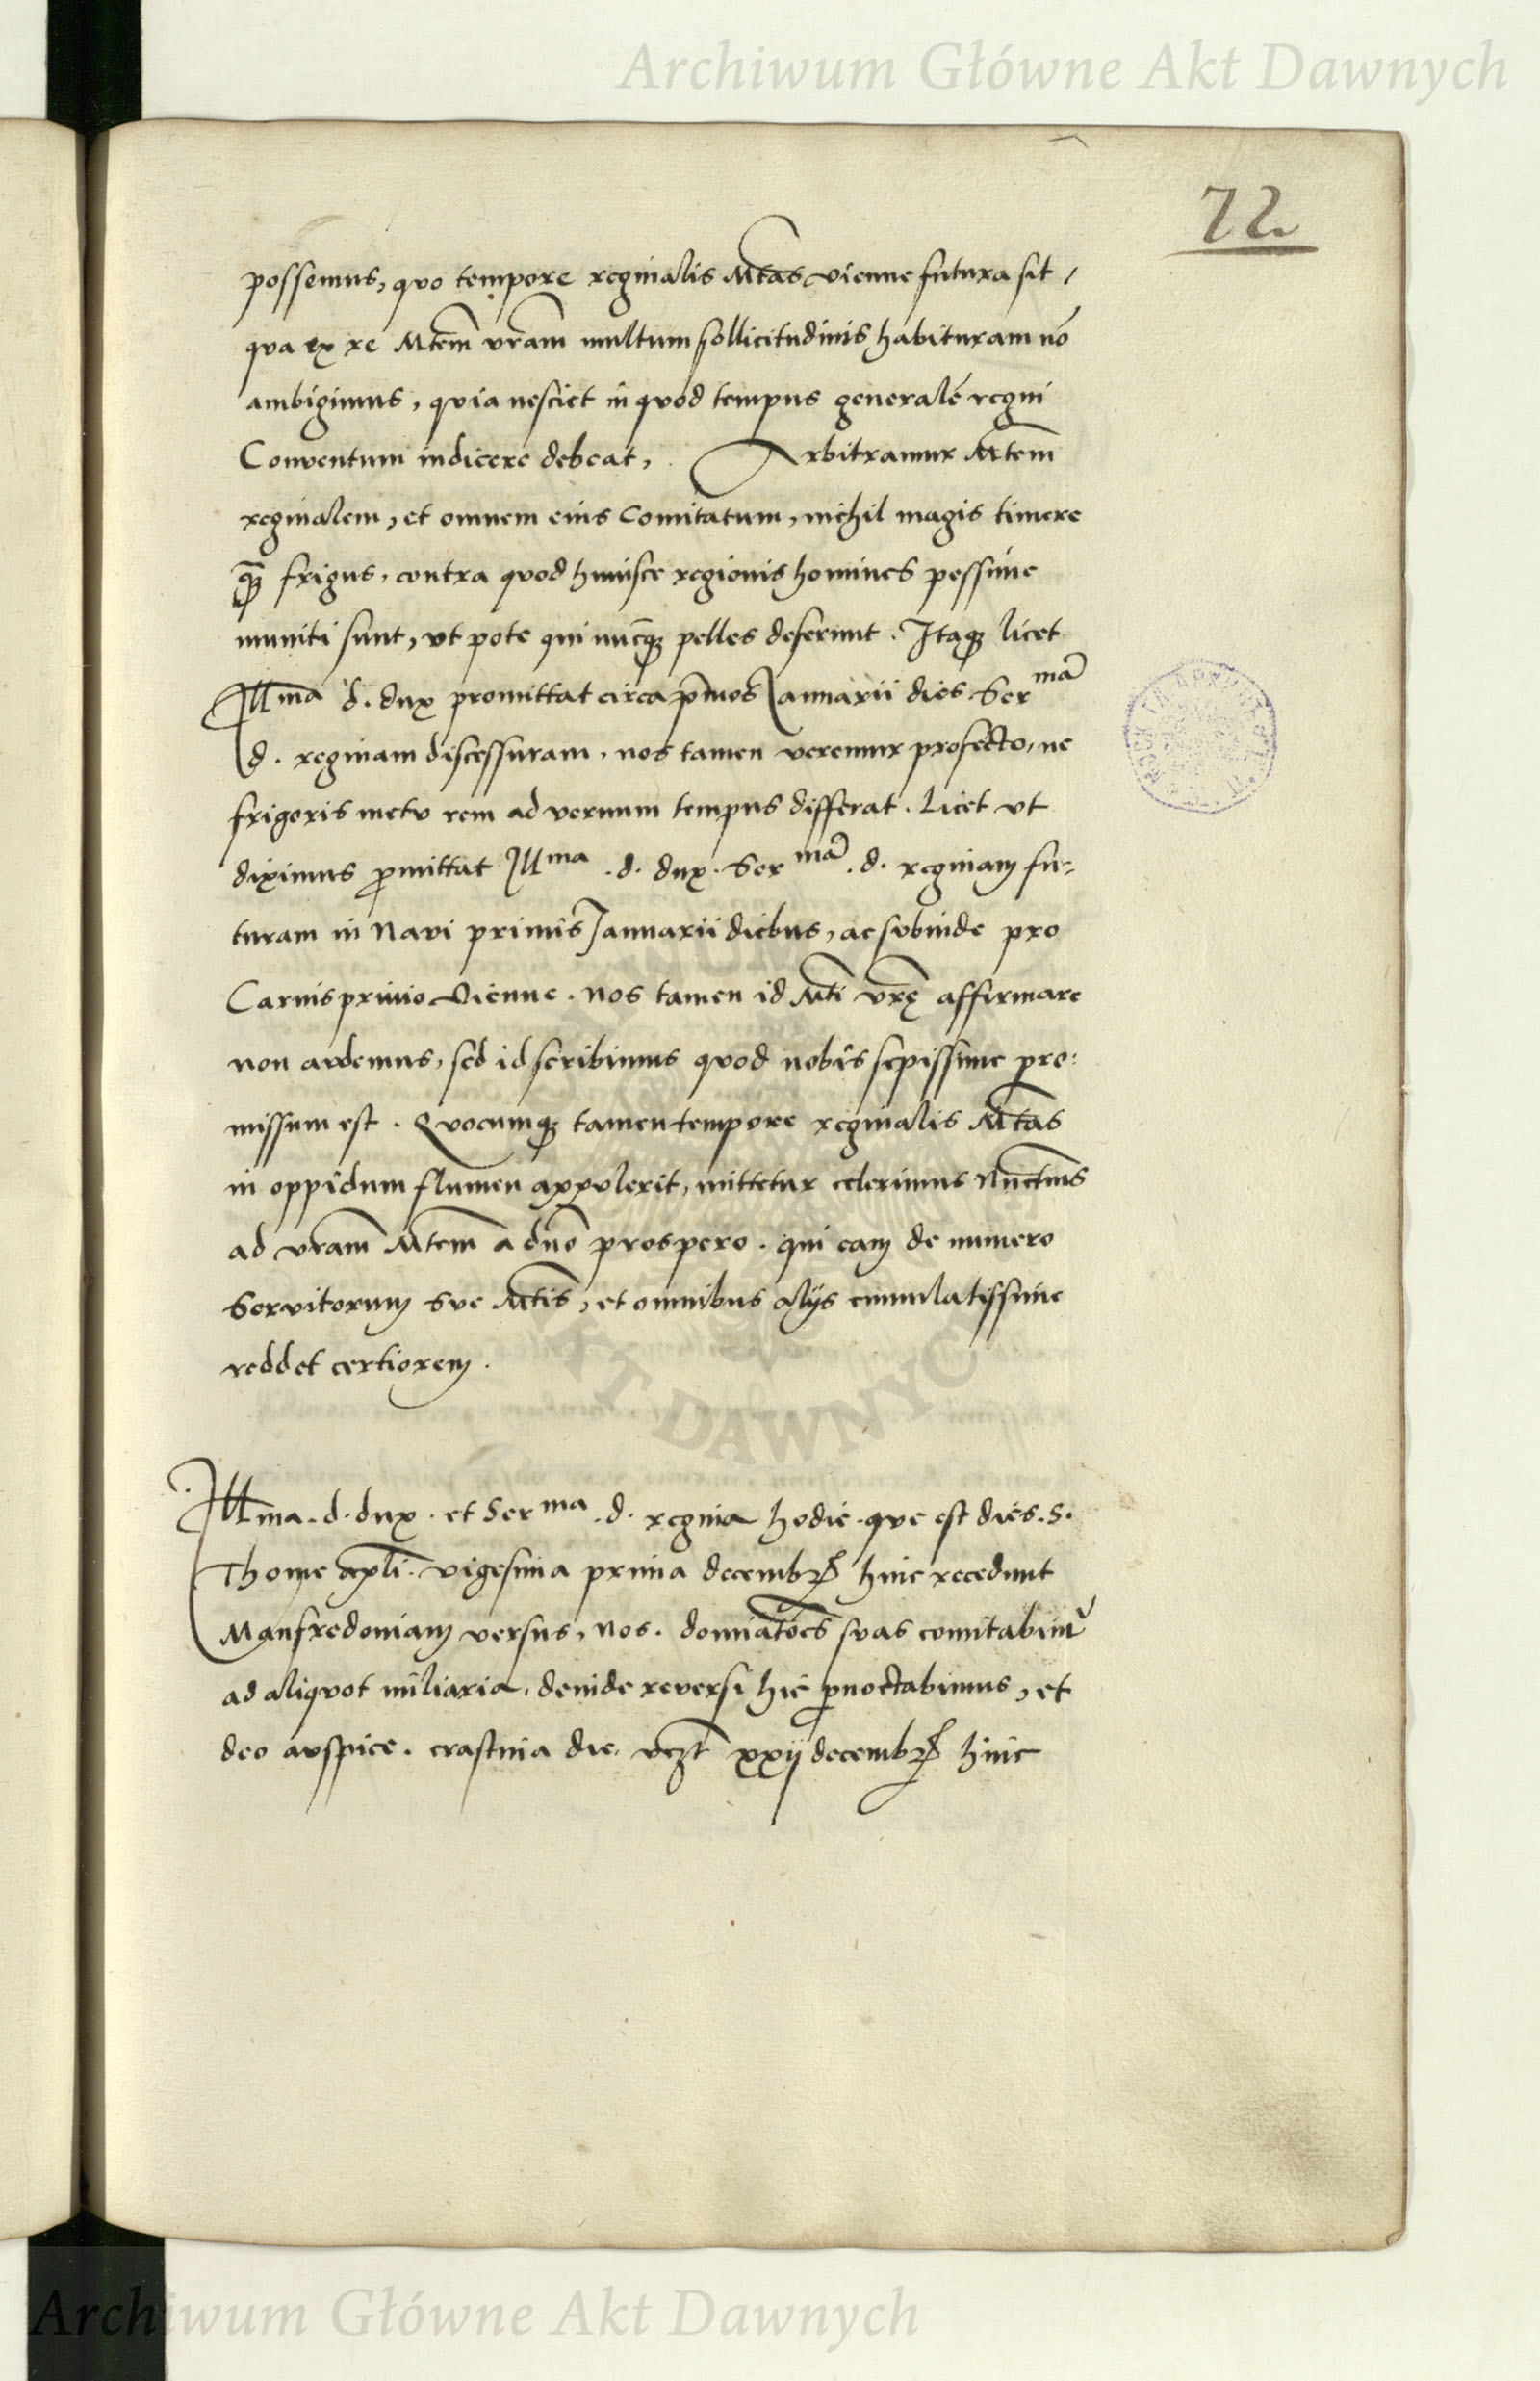 Archiwum Główne Akt Dawnych
72.
possemus, quo tempore reginalis Mtas vienne futura sit,
qua ex re Mtem vram multum sollicitudinis habituram nō
ambigimus, quia nesciet in quod tempus generalē regni
Conventum indicere debeat, Arbitramur Mtem
reginalem, et omnem eius Comitatum, nichil magis timere
quā frigus, contra quod huiusce regionis homines pessime
muniti sunt, ut pote qui nūcq pelles deferunt. Itaq licet
Illma d. dux promittat circa p̄mos Januarii dies Ser mā
d. reginam discessuram, nos tamen veremur profecto, ne
frigoris metu rem ad vernum tempus differat. Licet ut
diximus p̄mittat Illma .d. dux. Ser mā .d. reginam fu-
turam in Navi primis Januarii diebus, ac subinde pro
Carnisprivio Vienne. Nos tamen id Mti vrę affirmare
non audemus, sed id scribimus quod nobis sepissime pro:
missum est. Quocumq tamen tempore reginalis Mtas
in oppidum flumen appulerit, mittetur celerimus Nunctius
ad vram Mtem a dno prospero. qui eam de numero
Servitorum sue Mtis, et omnibus alijs cumulatissime
reddet certiorem.
Illma. d. dux. et Ser ma .d. regina hodie. que est dies. S.
Thome apli. vigesima prima decembr hinc recedunt
Manfredoniam versus, nos. dominatoēs suas comitabim
ad aliquot miliaria. deinde reversi hic pnoctabimus, et
deo auspice. crastina die. vczt xxij decembr hinc
AKT DAWNYCH
Archiwum Główne Akt Dawnych